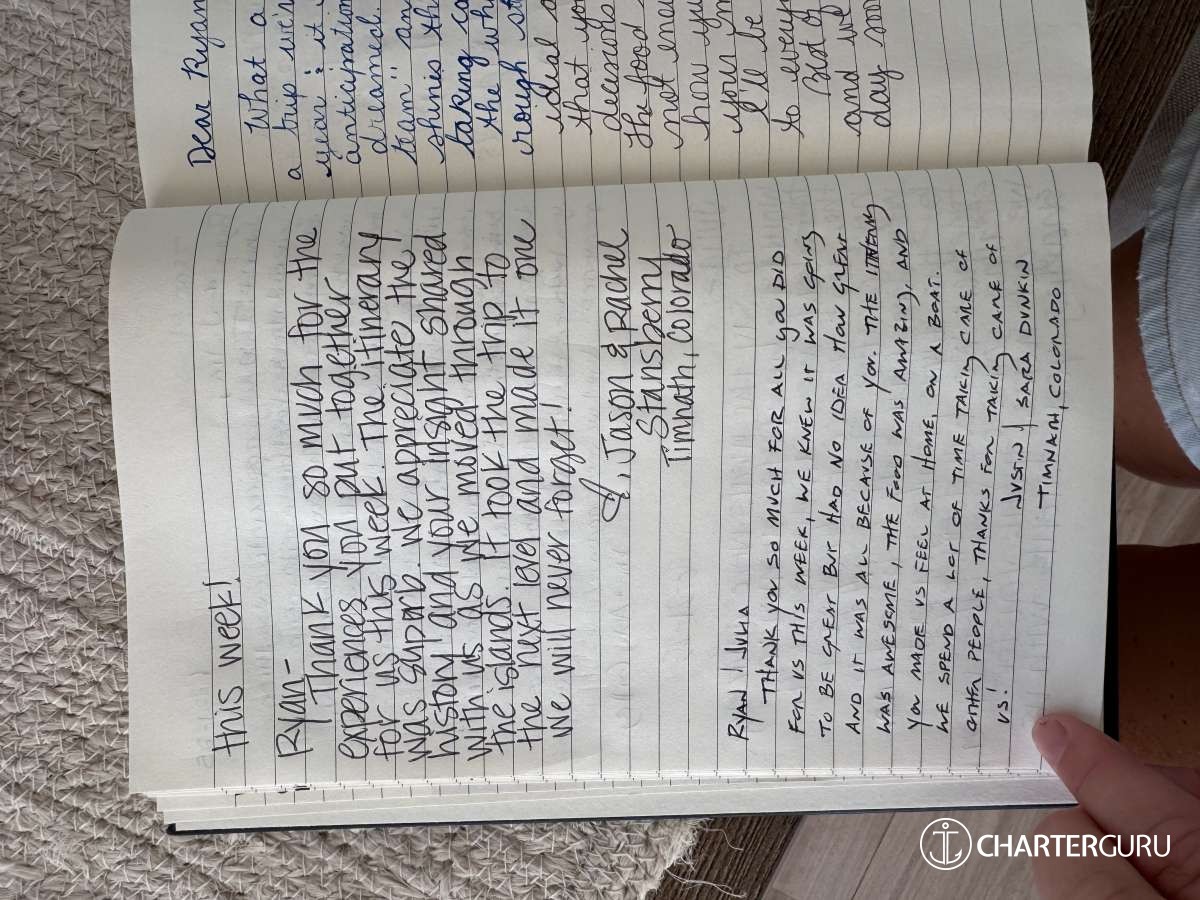 this week!
Ryan-
Thank you so much for the
experiences you put together
for us this week. The itinerary
was suparb. We appreciate the
history and your insight shared
with us as we moved through
the islands. It took the trip to
the next level and made it one
we will never forget!
♡, Jason & Rachel
Stansberry
Timnath, Colorado
RYAN / JULIA
THANK YOU SO MUCH FOR ALL YOU DID
FOR US THIS WEEK, WE KNEW IT WAS GOING
TO BE GREAT BUT HAD NO IDEA HOW GREAT
AND IT WAS ALL BECAUSE OF YOU. THE ITINERARY
WAS AWESOME, THE FOOD WAS AMAZING, AND
YOU MADE US FEEL AT HOME, ON A BOAT.
WE SPEND A LOT OF TIME TAKING CARE OF
OTHER PEOPLE, THANKS FOR TAKING CARE OF
US!
JUSTIN / SARA DUNKIN
TIMNATH, COLORADO
Dear Ryan
What a
a trip
year it
anticipation
dreamed
team"
taking
the
rough
ideal
that
decisions
the food
not
how
your
I'll be
to
Best of
and
day
CHARTERGURU